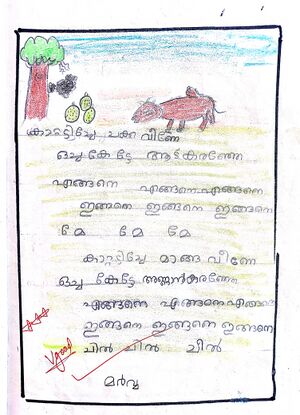 കാറ്റടിച്ചേ ചക്ക വീണേ
ഒച്ച കേട്ടേ ആട് കരഞ്ഞേ
എങ്ങനെ എങ്ങനെ എങ്ങനെ
ഇങ്ങനെ ഇങ്ങനെ ഇങ്ങനെ
മേ മേ മേ
കാറ്റടിച്ചേ മാങ്ങ വീണേ
ഒച്ച കേട്ടേ അണ്ണാൻ കരഞ്ഞേ
എങ്ങനെ എങ്ങനെ എങ്ങനെ
ഇങ്ങനെ ഇങ്ങനെ ഇങ്ങനെ
ചിൽ ചിൽ ചിൽ
V good
മർവ്വ